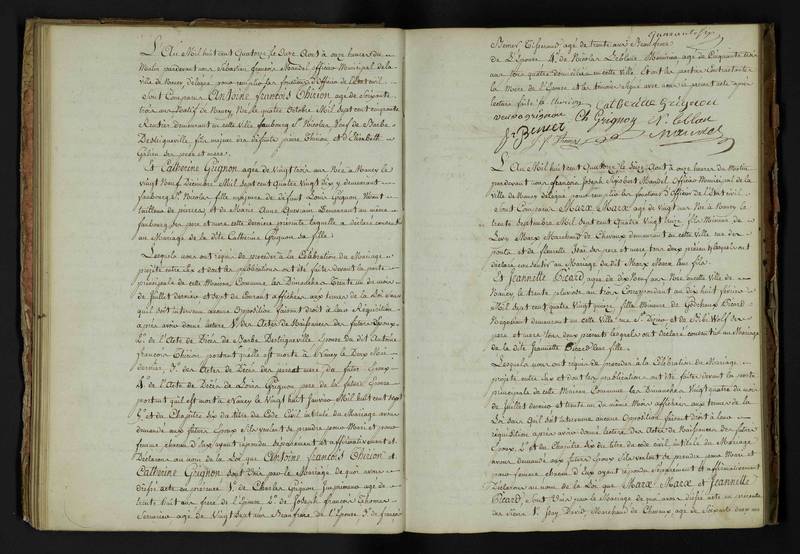 L'An Mil huit cent Quatorze le Onze Aout à onze heures du
Matin pardevant nous françois Mandel Officier Municipal de la
Ville de Nancy délégué pour remplir les fonctions d'Officier de l'Etat civil
Sont Comparus Antoine françois Thirion agé de Soixante
trois ans natif de Nancy, Né le quatre Octobre Mil Sept cent cinquante
Rentier demeurant en cette Ville faubourg St. Nicolas, Veuf de Barbe
fils majeur des défunts Thirion et Elisabeth
ses pere et mere
Et Catherine Grignon agée de Vingt trois ans Née à Nancy le
Vingt Neuf Décembre Mil Sept cent Quatre Vingt dix y demeurant
faubourg St. Nicolas fille majeure de défunt Louis Grignon Vivant
tailleur de pierres, et de Marie Anne demeurant au même
faubourg ses pere et mere cette derniere présente laquelle a déclaré consentir
au Mariage de la dite Catherine Grignon sa fille
Lesquels nous ont requis de procéder à la Célébration du Mariage
projetté entre Eux et dont les publications ont été faites devant la porte
principale de cette Maison Commune les Dimanches trente un du mois
de Juillet dernier et Sept du Courant affichées aux termes de la Loi Sans
qu'il soit intervenu aucune Opposition faisant droit à leur Réquisition
après avoir donné lecture 1°. des Actes de Naissances des futurs Epoux
2°. de l'Acte de Décès de Barbe Epouse du dit Antoine
françois Thirion portant quelle est morte à Nancy le
dernier, 3°. des Actes de Décès des pere et mere du futur Epoux
4°. de l'Acte de Décès de Louis Grignon pere de la future Epouse
portant qu'il est mort à Nancy le Vingt huit Janvier Mil huit cent Sept
5°. et du Chapitre Six du titre du Code Civil intitulé du Mariage avons
demandé aux futurs Epoux s'ils veulent se prendre pour Mari et pour
femme chacun d'Eux ayant répondu Séparément et affirmativement
Déclarons au nom de la Loi que Antoine françois Thirion et
Catherine Grignon sont Unis par le Mariage de quoi avons
dressé acte en présence 1°. de Charles Grignon agé de
trente huit ans frere de l'Epouse 2°. de Joseph françois Thomas
agé de Vingt Sept ans Beaufrere de l'Epouse, 3°. de françois
Quarante six
Benier Tisserand agé de trente ans Beaufrere
de L'Epouse 4°. de Nicolas Leblanc agé de Cinquante
ans tous quatre domiciliés en cette Ville. Et ont les parties Contractantes
la Mere de l'Epouse et les témoins Signé avec nous le présent acte après
lecture faite
Catherine Grignon
Ch Grignon
Thomas
Mandel
L'An Mil huit cent Quatorze le Onze Aout à onze heures du Matin
pardevant nous françois Joseph Mandel Officier Municipal de la
Ville de Nancy délégué pour remplir les fonctions d'Officier de l'Etat civil
Sont Comparus Marx Marx agé de Vingt ans Né à Nancy le
trente Septembre Mil Sept cent Quatre Vingt treize fils Mineur de
Levy Marx Marchand de Chevaux demeurant en cette Ville rue des
ponts et de fleurette ses pere et mere tous deux présens lesquels ont
déclaré consentir au Mariage du dit Marx Marx leur fils
Et Jeannette Picard agée de dix Neuf ans Née en cette Ville de
Nancy le trente pluviose an trois Correspondant au dix huit fevrier
Mil Sept cent quatre Vingt quinze fille Mineure de Godchaux Picard
Négociant demeurant en cette Ville rue St. Dizier et de Wolf ses
pere et mere tous deux présens lesquels ont déclaré consentir au Mariage
de la dite Jeannette Picard leur fille
Lesquels nous ont requis de procéder à la Célébration du Mariage
projetté entre Eux et dont les publications ont été faites devant la porte
principale de cette Maison Commune les Dimanches Vingt quatre du mois
de Juillet dernier et trente un du même Mois affichées aux termes de la
Loi Sans Qu'il soit intervenu aucune Opposition faisant droit à leur
réquisition après avoir donné lecture des Actes de Naissances des futurs
Epoux et du Chapitre Six du titre du code civil intitulé du Mariage
avons demandé aux futurs Epoux s'ils veulent se prendre pour Mari et
pour femme chacun d'Eux ayant répondu Séparément et affirmativement
Déclarons au nom de la Loi que Marx Marx et Jeannette
Picard, sont Unis par le Mariage de quoi avons dressé acte en présence
des Sieurs 1°. David, Marchand de Chevaux agé de Soixante deux ans